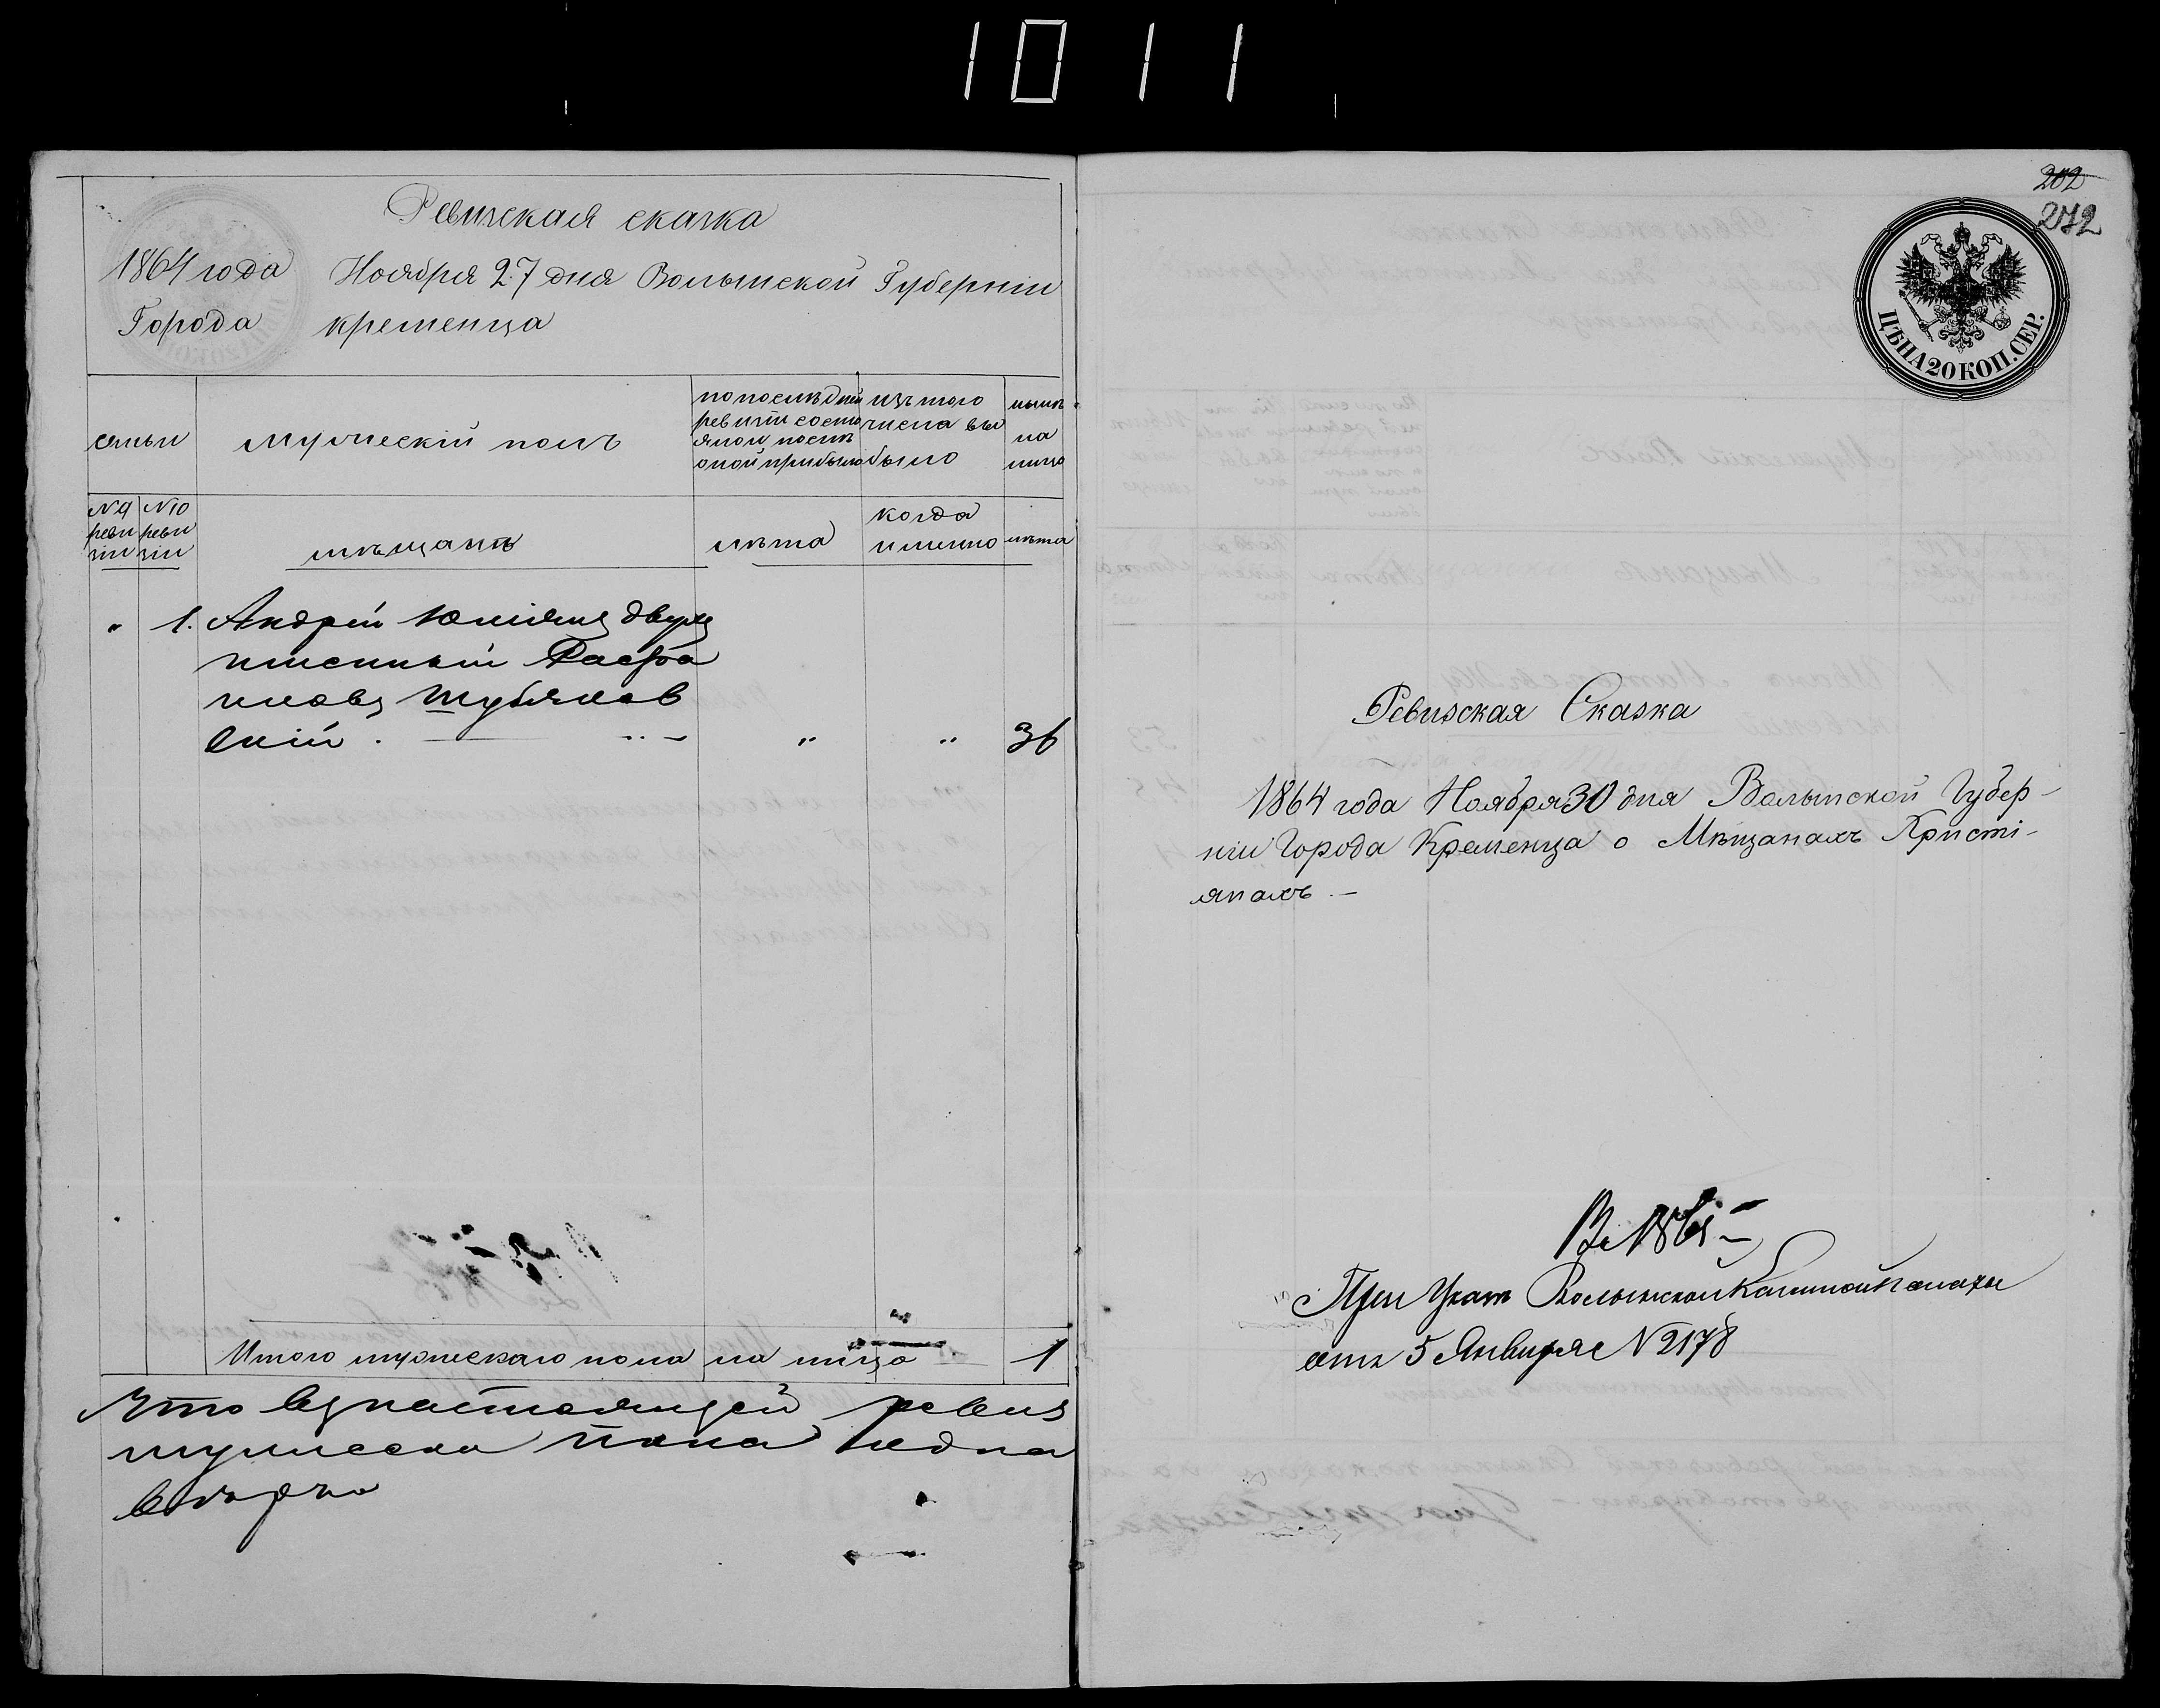 1011
Ревизская сказка
1864 года Ноября 27 дня Волынской Губерніи
Города кременца
семьи
мужескій полъ
по послѣдней ревизіи состояло и послѣ оной прибыло
изъ того числа выбыло
нынѣ на лицо
№ 9 ревизіи
№ 10 ревизіи
мѣщанъ
лѣта
когда именно
лѣта
" 1. Андрей Юліянъ двух
именный
иловъ
скій . " " 36
Итого мужескаго пола на лицо 1
Что въ настоящей ревиз
пола една
вѣрно
202
272
ЦѢНА 20 КОП. СЕР.
Ревизская Сказка
1864 года Ноября 30 дня Волынской Губер-
ніи Города Кременца о Мѣщанахъ Христі-
янахъ . –
При Указѣ Волынской Казенной Палаты
отъ 5 Января № 2178